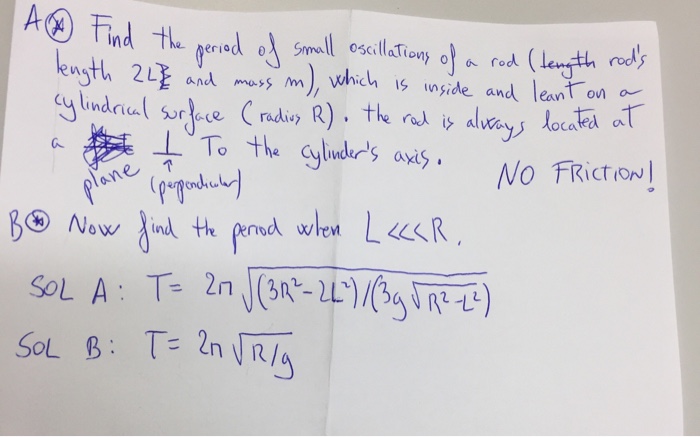 A* Find the period of small oscillations of a rod (length rod's
length 2L and mass m), which is inside and leant on a
cylindrical surface (radius R). the rod is always located at
a plane ⊥ To the cylinder's axis.
(perpendicular)
NO FRICTION!
B* Now find the period when L <<< R.
SOL A: T= 2π √(3R²-2L²)/(3g√R²-L²)
SOL B: T= 2π √R/g